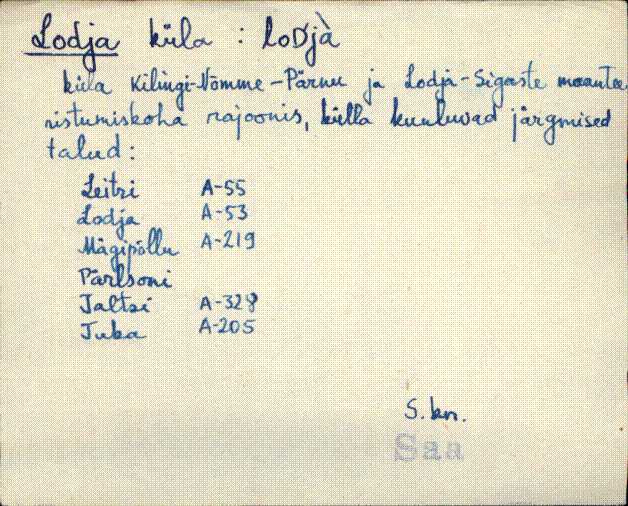 Lodja küla : loDjà
küla Kilingi-Nõmme-Pärnu ja Lodja-Sigaste maantee
ristumiskoha rajoonis, külla kuuluvad järgmised
talud :
Leitri A-55
Lodja A-53
Mägipõllu A-219
Pärlsoni
Taltsi A-328
Tuka A-205
S. kn.
Saa